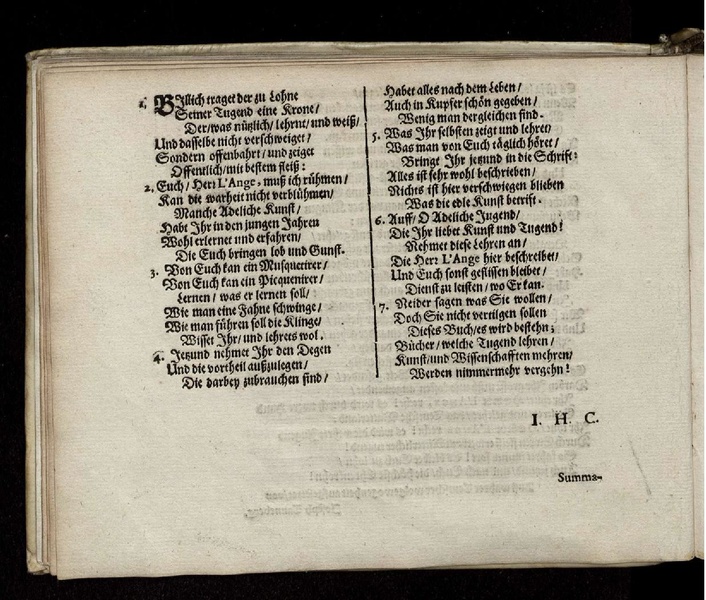 1. Billich traget der zu Lohne
Seiner Tugend eine Krone/
Der/was nützlich/ lehrnt/ und weiß/
Und dasselbe nicht verschweiget/
Sondern offenbahrt/ und zeiget
Offentlich/ mit bestem fleiß:
2. Euch/ Herr L'Ange, muß ich rühmen/
Kan die warheit nicht verblühmen/
Manche Adeliche Kunst/
Habt Ihr in den jungen Jahren
Wohl erlernet und erfahren/
Die Euch bringen lob und Gunst.
3. Von Euch kan ein Musquetirer/
Von Euch kan ein Picquenirer/
Lernen/ was er lernen soll/
Wie man eine Fahne schwinge/
Wie man führen soll die Klinge/
Wisset Ihr/ und lehrets wol.
4. Jetzund nehmet Ihr den Degen
Und die vortheil außzulegen/
Die darbey zubrauchen sind/
Habet alles nach dem Leben/
Auch in Kupfer schön gegeben/
Wenig man dergleichen find.
5. Was Ihr selbsten zeigt und lehret/
Was man von Euch täglich höret/
Bringt Ihr jezund in die Schrift:
Alles ist sehr wohl beschrieben/
Nichts ist hier verschwiegen blieben
Was die edle Kunst betrift.
6. Auff/ O Adeliche Jugend/
Die Ihr liebet Kunst und Tugend!
Nehmet diese Lehren an/
Die Herr L'Ange hier beschreibet/
Und Euch sonst geflissen bleibet/
Dienst zu leisten/ wo Er kan.
7. Neider sagen was Sie wollen/
Doch Sie nicht vertilgen sollen
Dieses Buch/ es wird bestehn;
Bücher/ welche Tugend lehren/
Kunst/ und Wissenschafften mehren/
Werden nimmermehr vergehn!
I. H. C.
Summa-